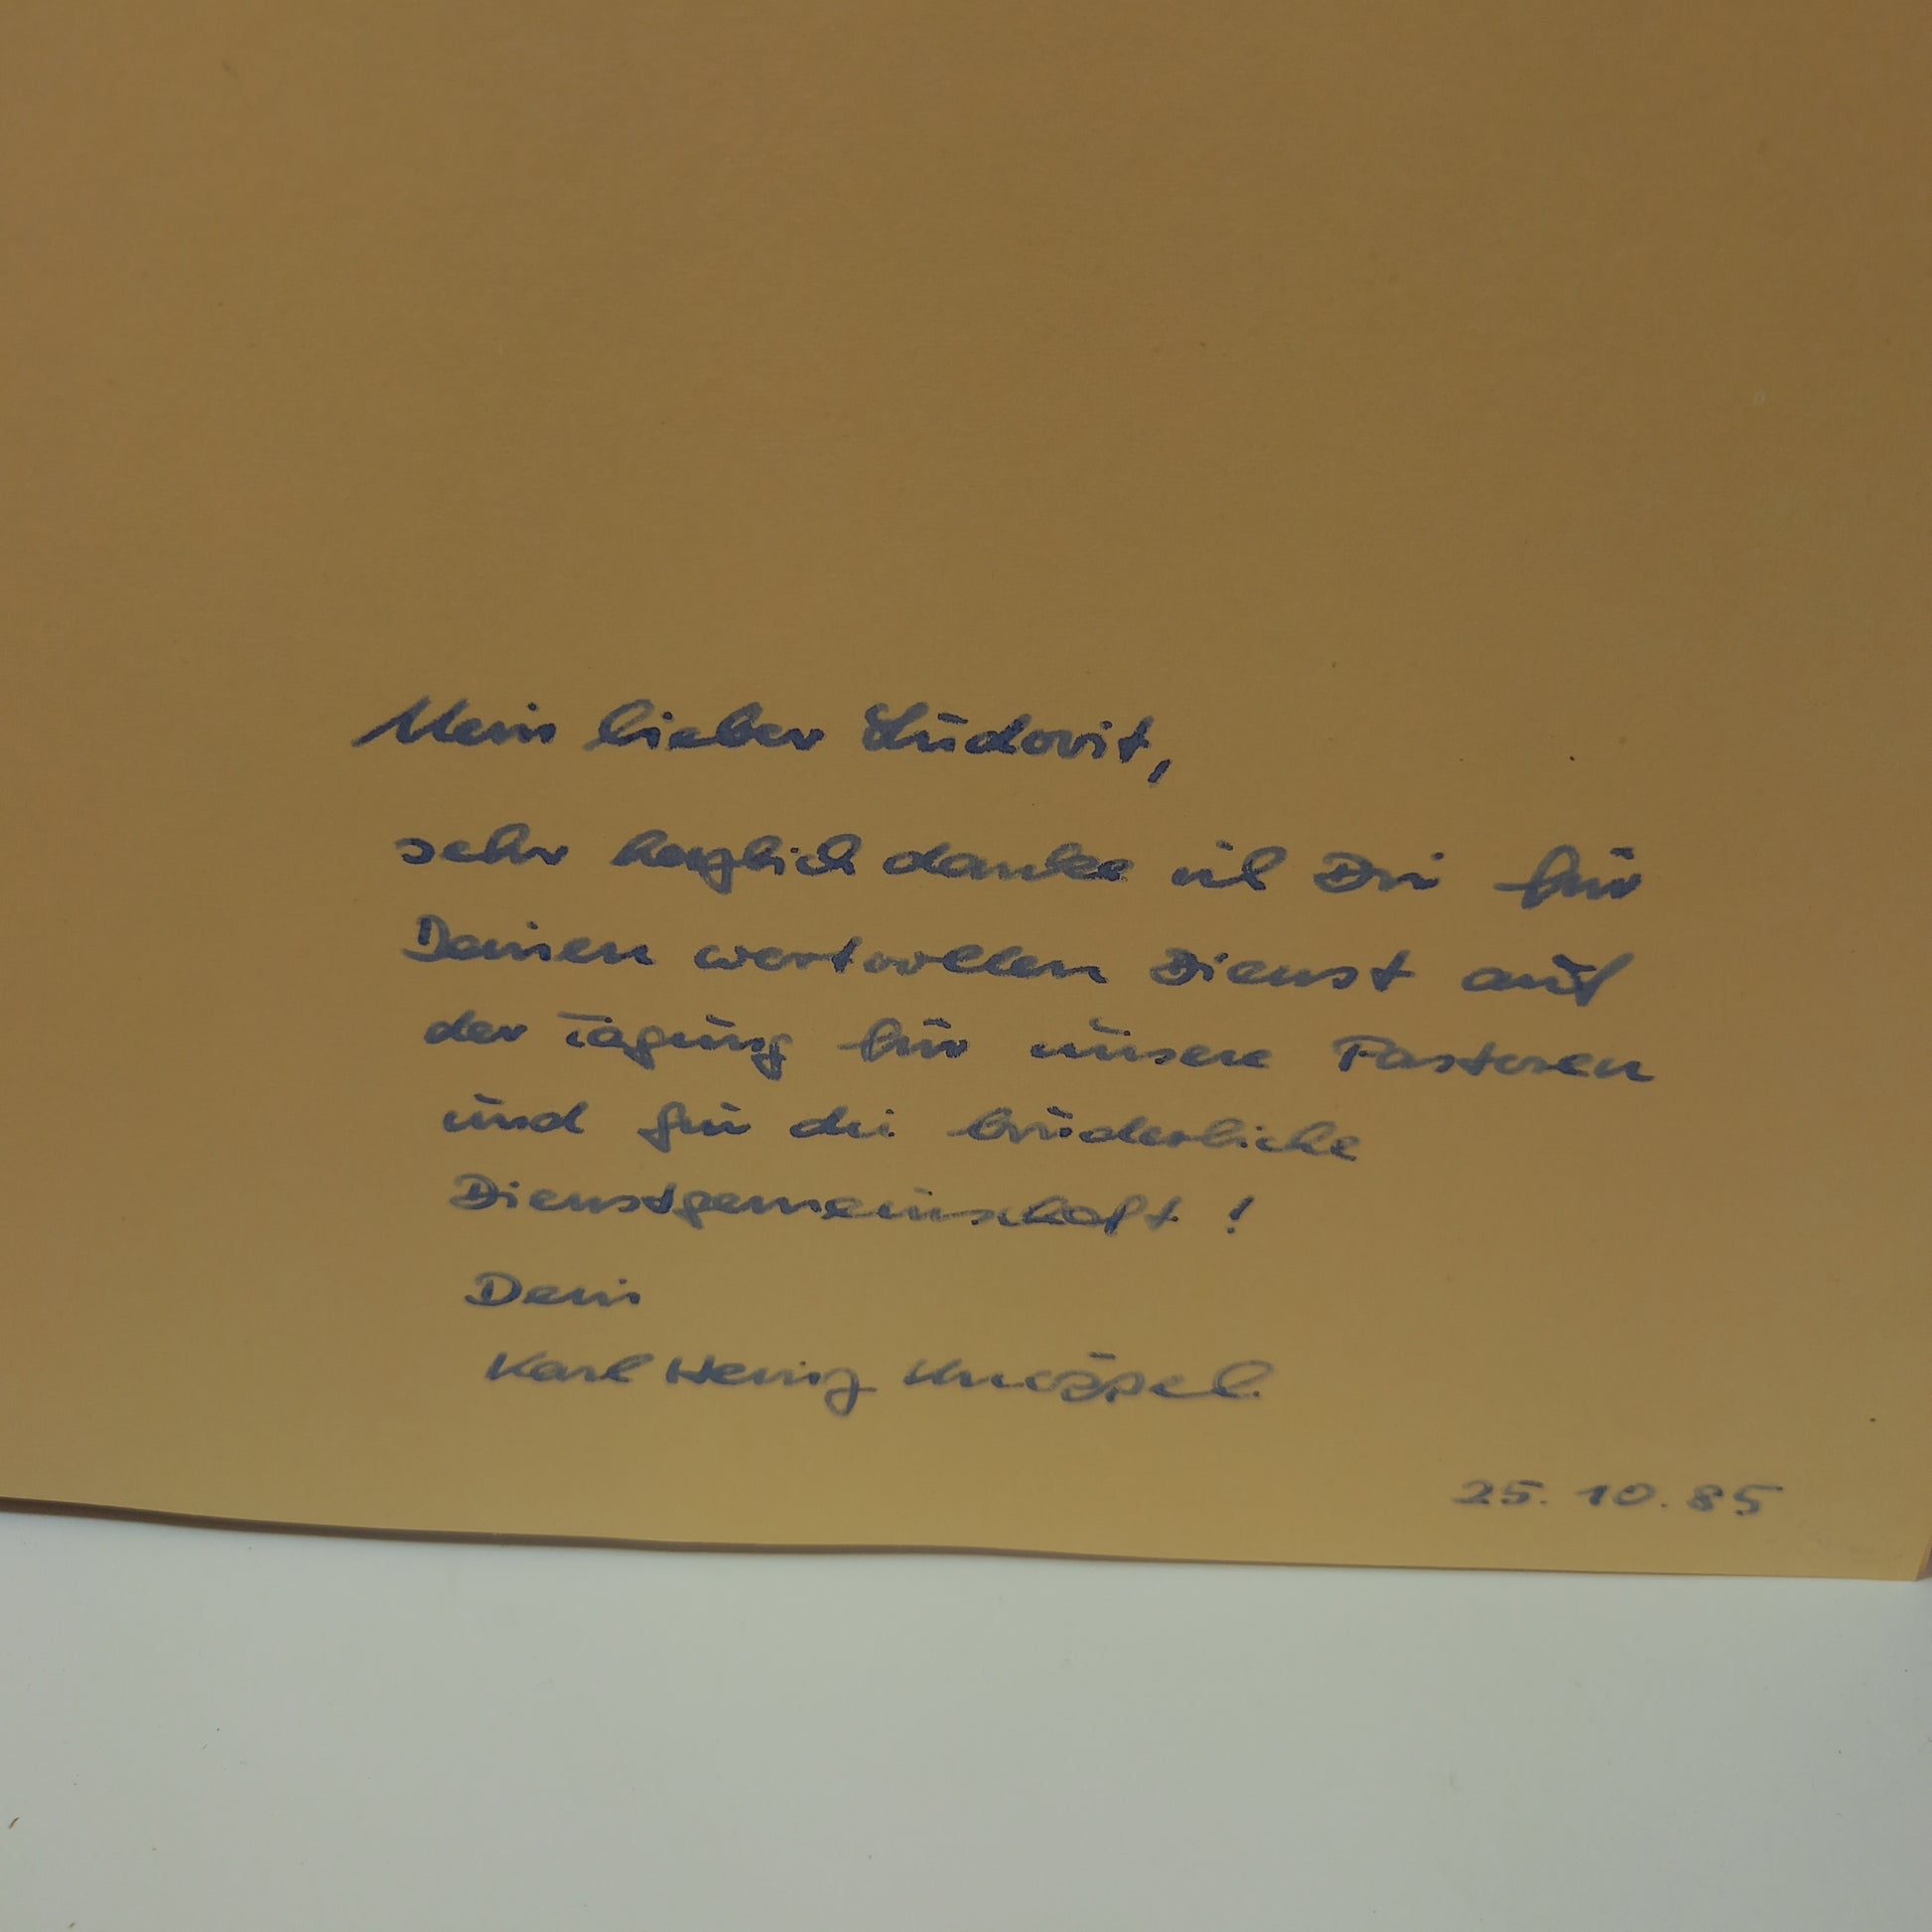 Mein lieber Ludovit,
sehr herzlich danke ich Dir für
Deinen wertvollen Dienst auf
der Tagung für unsere Pastoren
und für die brüderliche
Dienstgemeinschaft!
Dein
Karl Heinz Knöppel
25.10.85